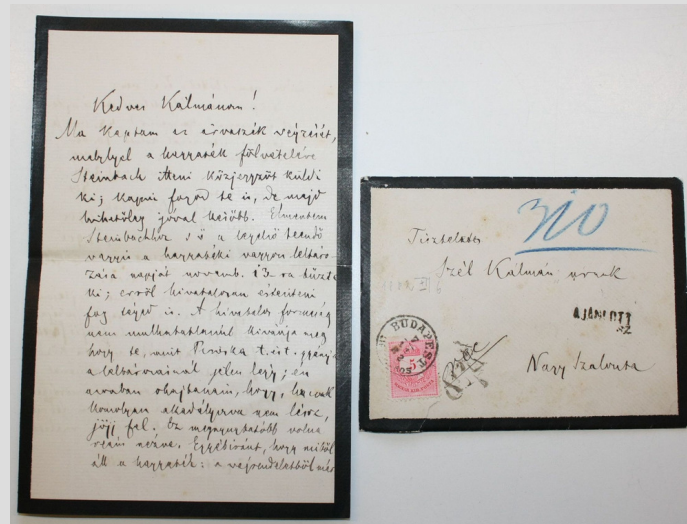 Kedves Kálmánom!
Ma kaptam az árvaszék végzését,
melylyel a hagyaték fölvételére
Steinbach közjegyzőt küldi
ki; kapni fogod te is, de majd
jóval később. Elmentem
Steinbachhoz s ő a teendő
vagyis a hagyatéki vagyon leltáro-
zása napját novemb. 13-ra tűzte
ki; erről hivatalosan értesíteni
fog téged is. A hivatalos formaság
nem mulhatatlanul kivánja meg
hogy te, mint Piroska t. i. t. gyámja
a leltározásnál jelen légy; én
azonban óhajtanám, hogy, ha csak
komolyan akadályozva nem lész,
jőjj fel. Ez megnyugtatóbb volna
reám nézve. Egyébiránt, hogy miből
áll a hagyaték: a végrendeletből már
310
Tiszteletes
Szél Kálmán úrnak
AJÁNLOTT
Nagy Szalonta
BUDAPEST
5